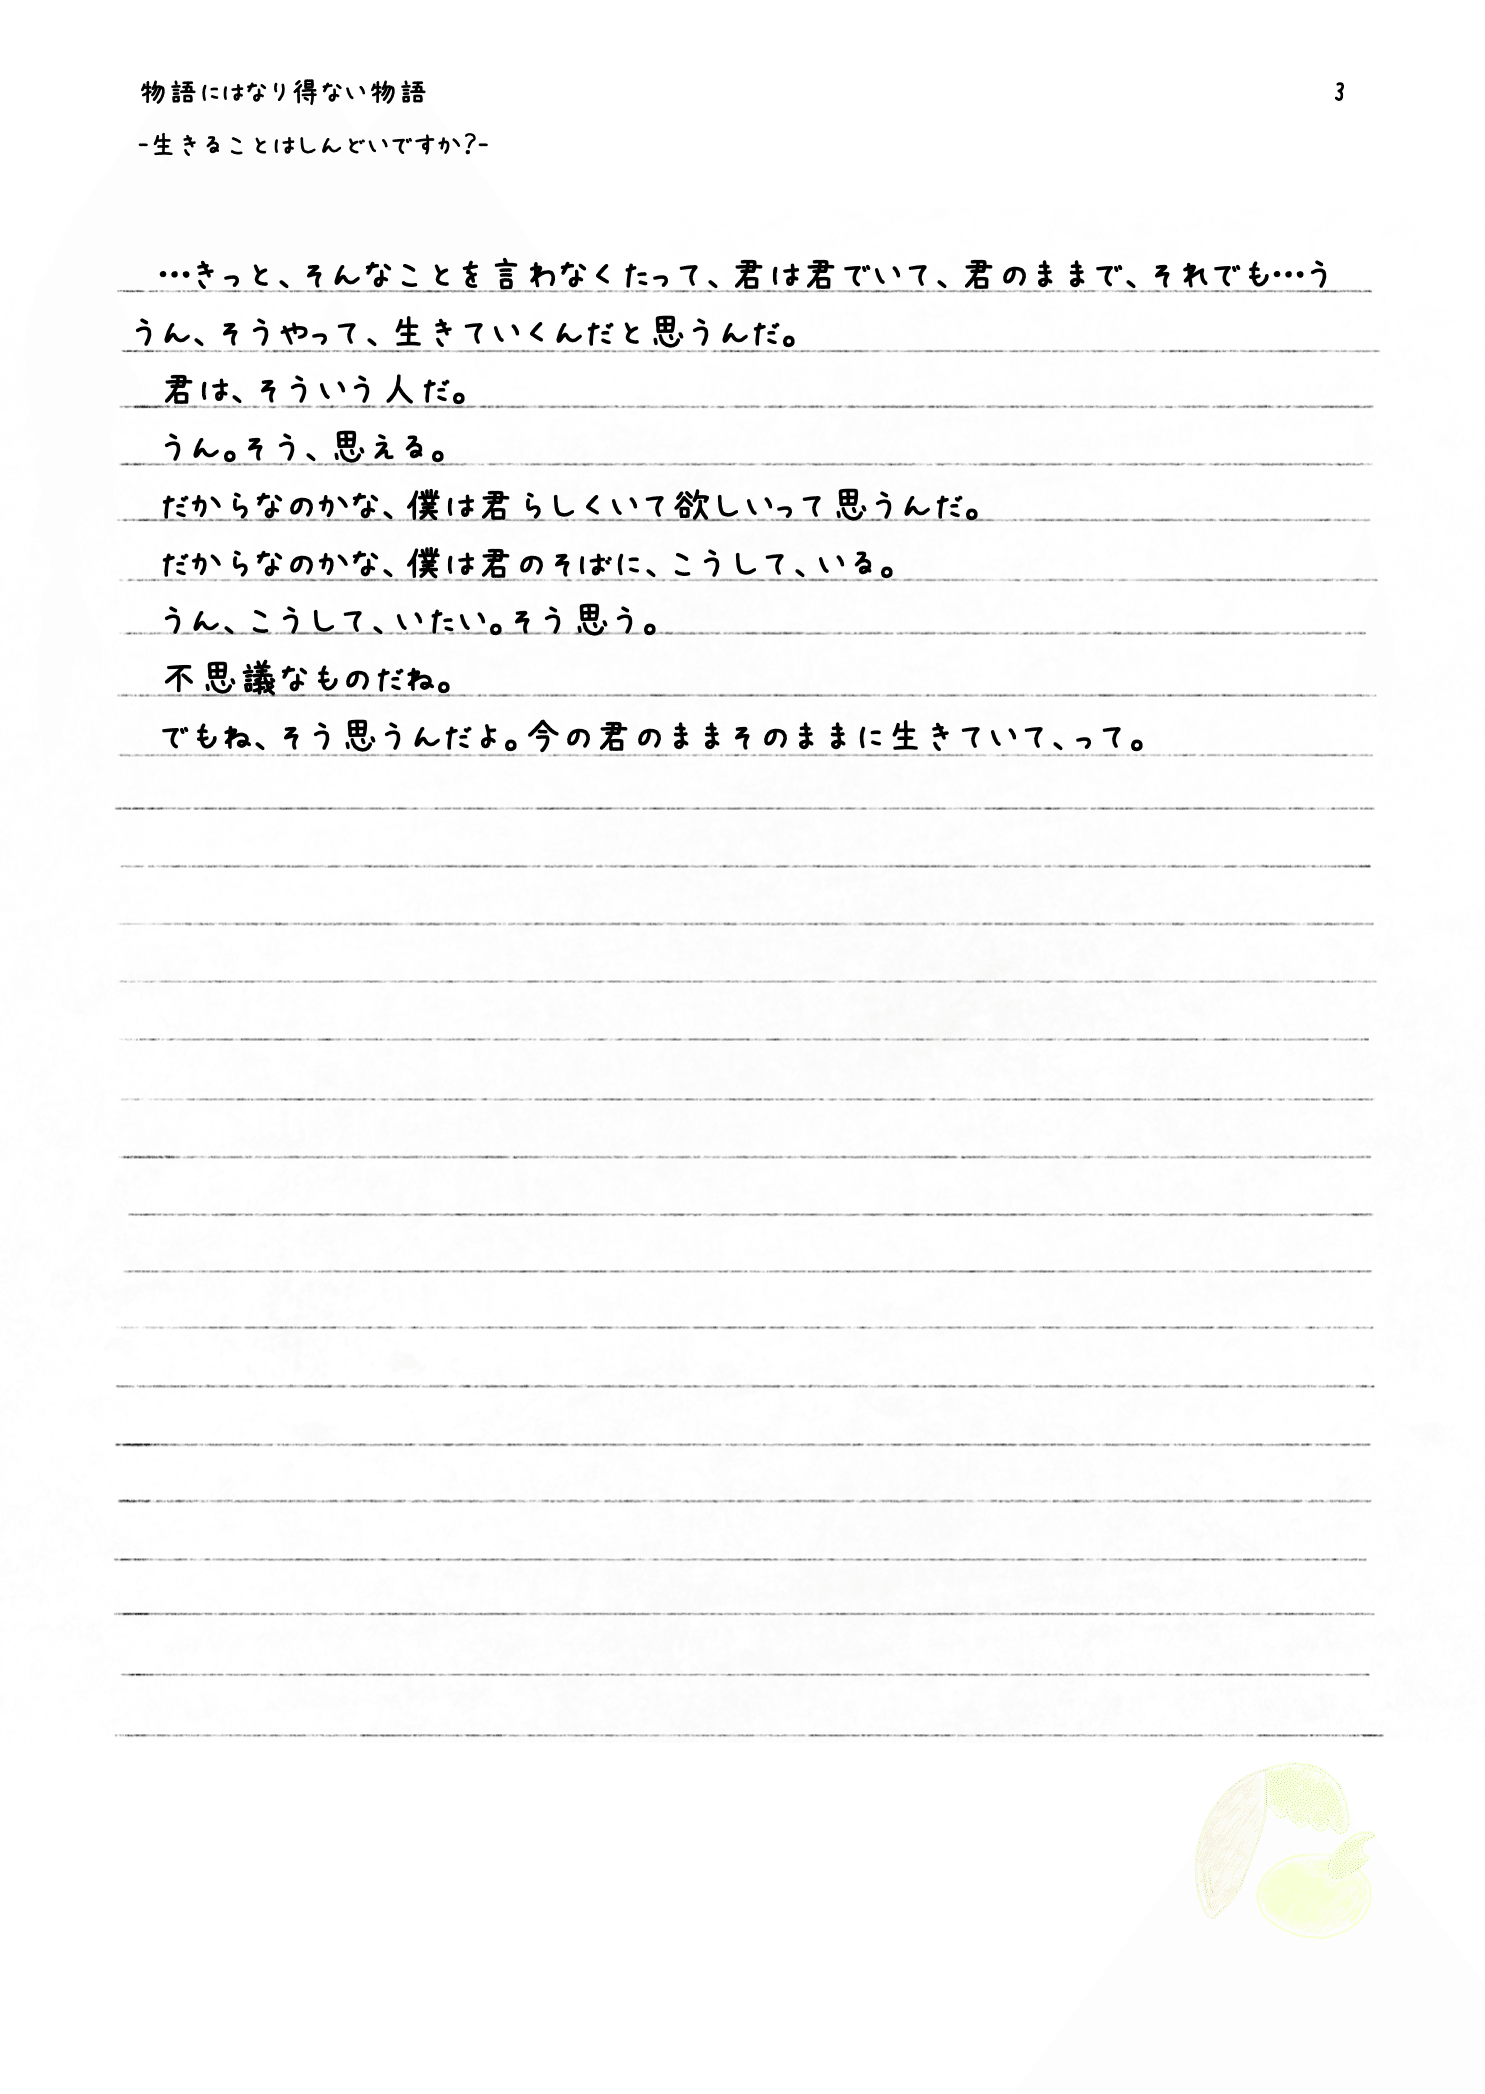 物語にはなり得ない物語
3
-生きることはしんどいですか?-
…きっと、そんなことを言わなくたって、君は君でいて、君のままで、それでも…う
うん、そうやって、生きていくんだと思うんだ。
君は、そういう人だ。
うん。そう、思える。
だからなのかな、僕は君らしくいて欲しいって思うんだ。
だからなのかな、僕は君のそばに、こうして、いる。
うん、こうして、いたい。そう思う。
不思議なものだね。
でもね、そう思うんだよ。今の君のままそのままに生きていて、って。